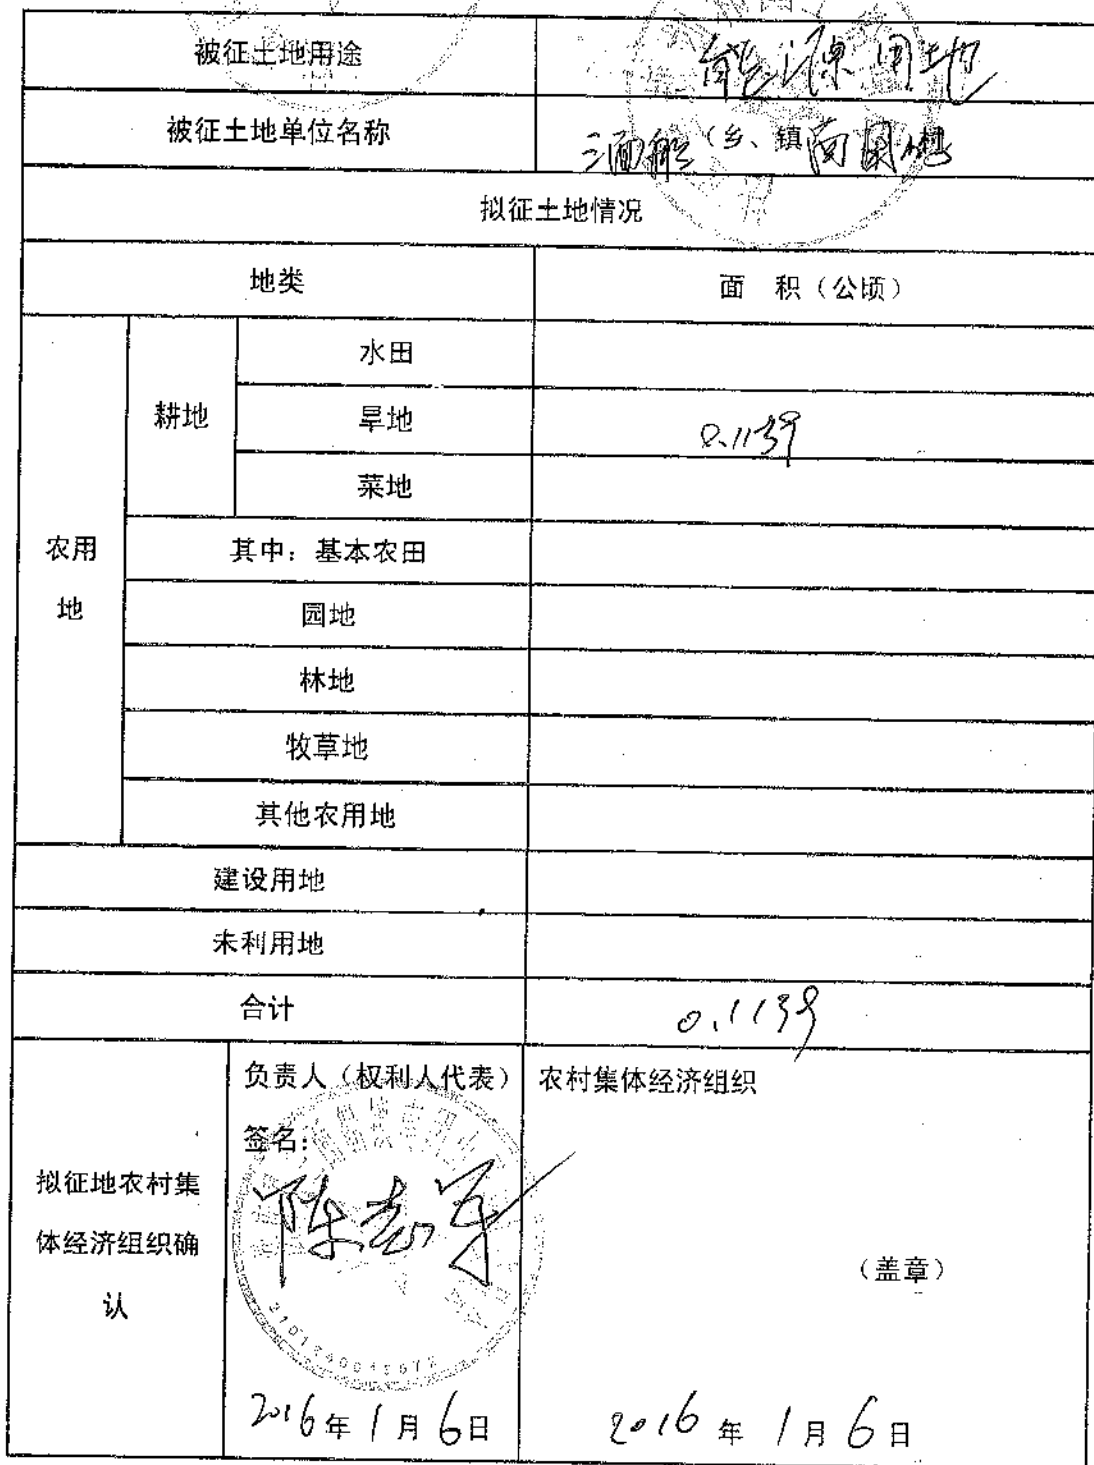 被征土地用途 能源用地
被征土地单位名称 (乡、镇
拟征土地情况
地类 面 积（公顷）
农用地
耕地
水田
旱地 0.1139
菜地
其中：基本农田
园地
林地
牧草地
其他农用地
建设用地
未利用地
合计 0.1139
拟征地农村集
体经济组织确
认
负责人（权利人代表）
签名：
陈志军
2016年1月6日
农村集体经济组织
（盖章）
2016年1月6日